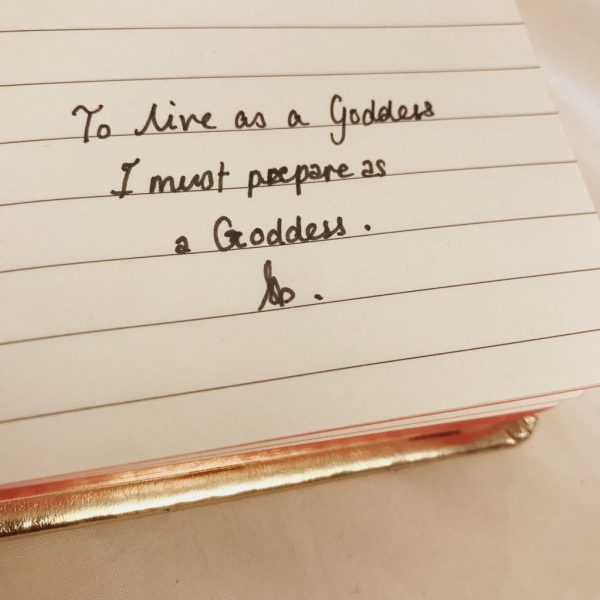 To live as a Goddess
I must prepare as
a Goddess.